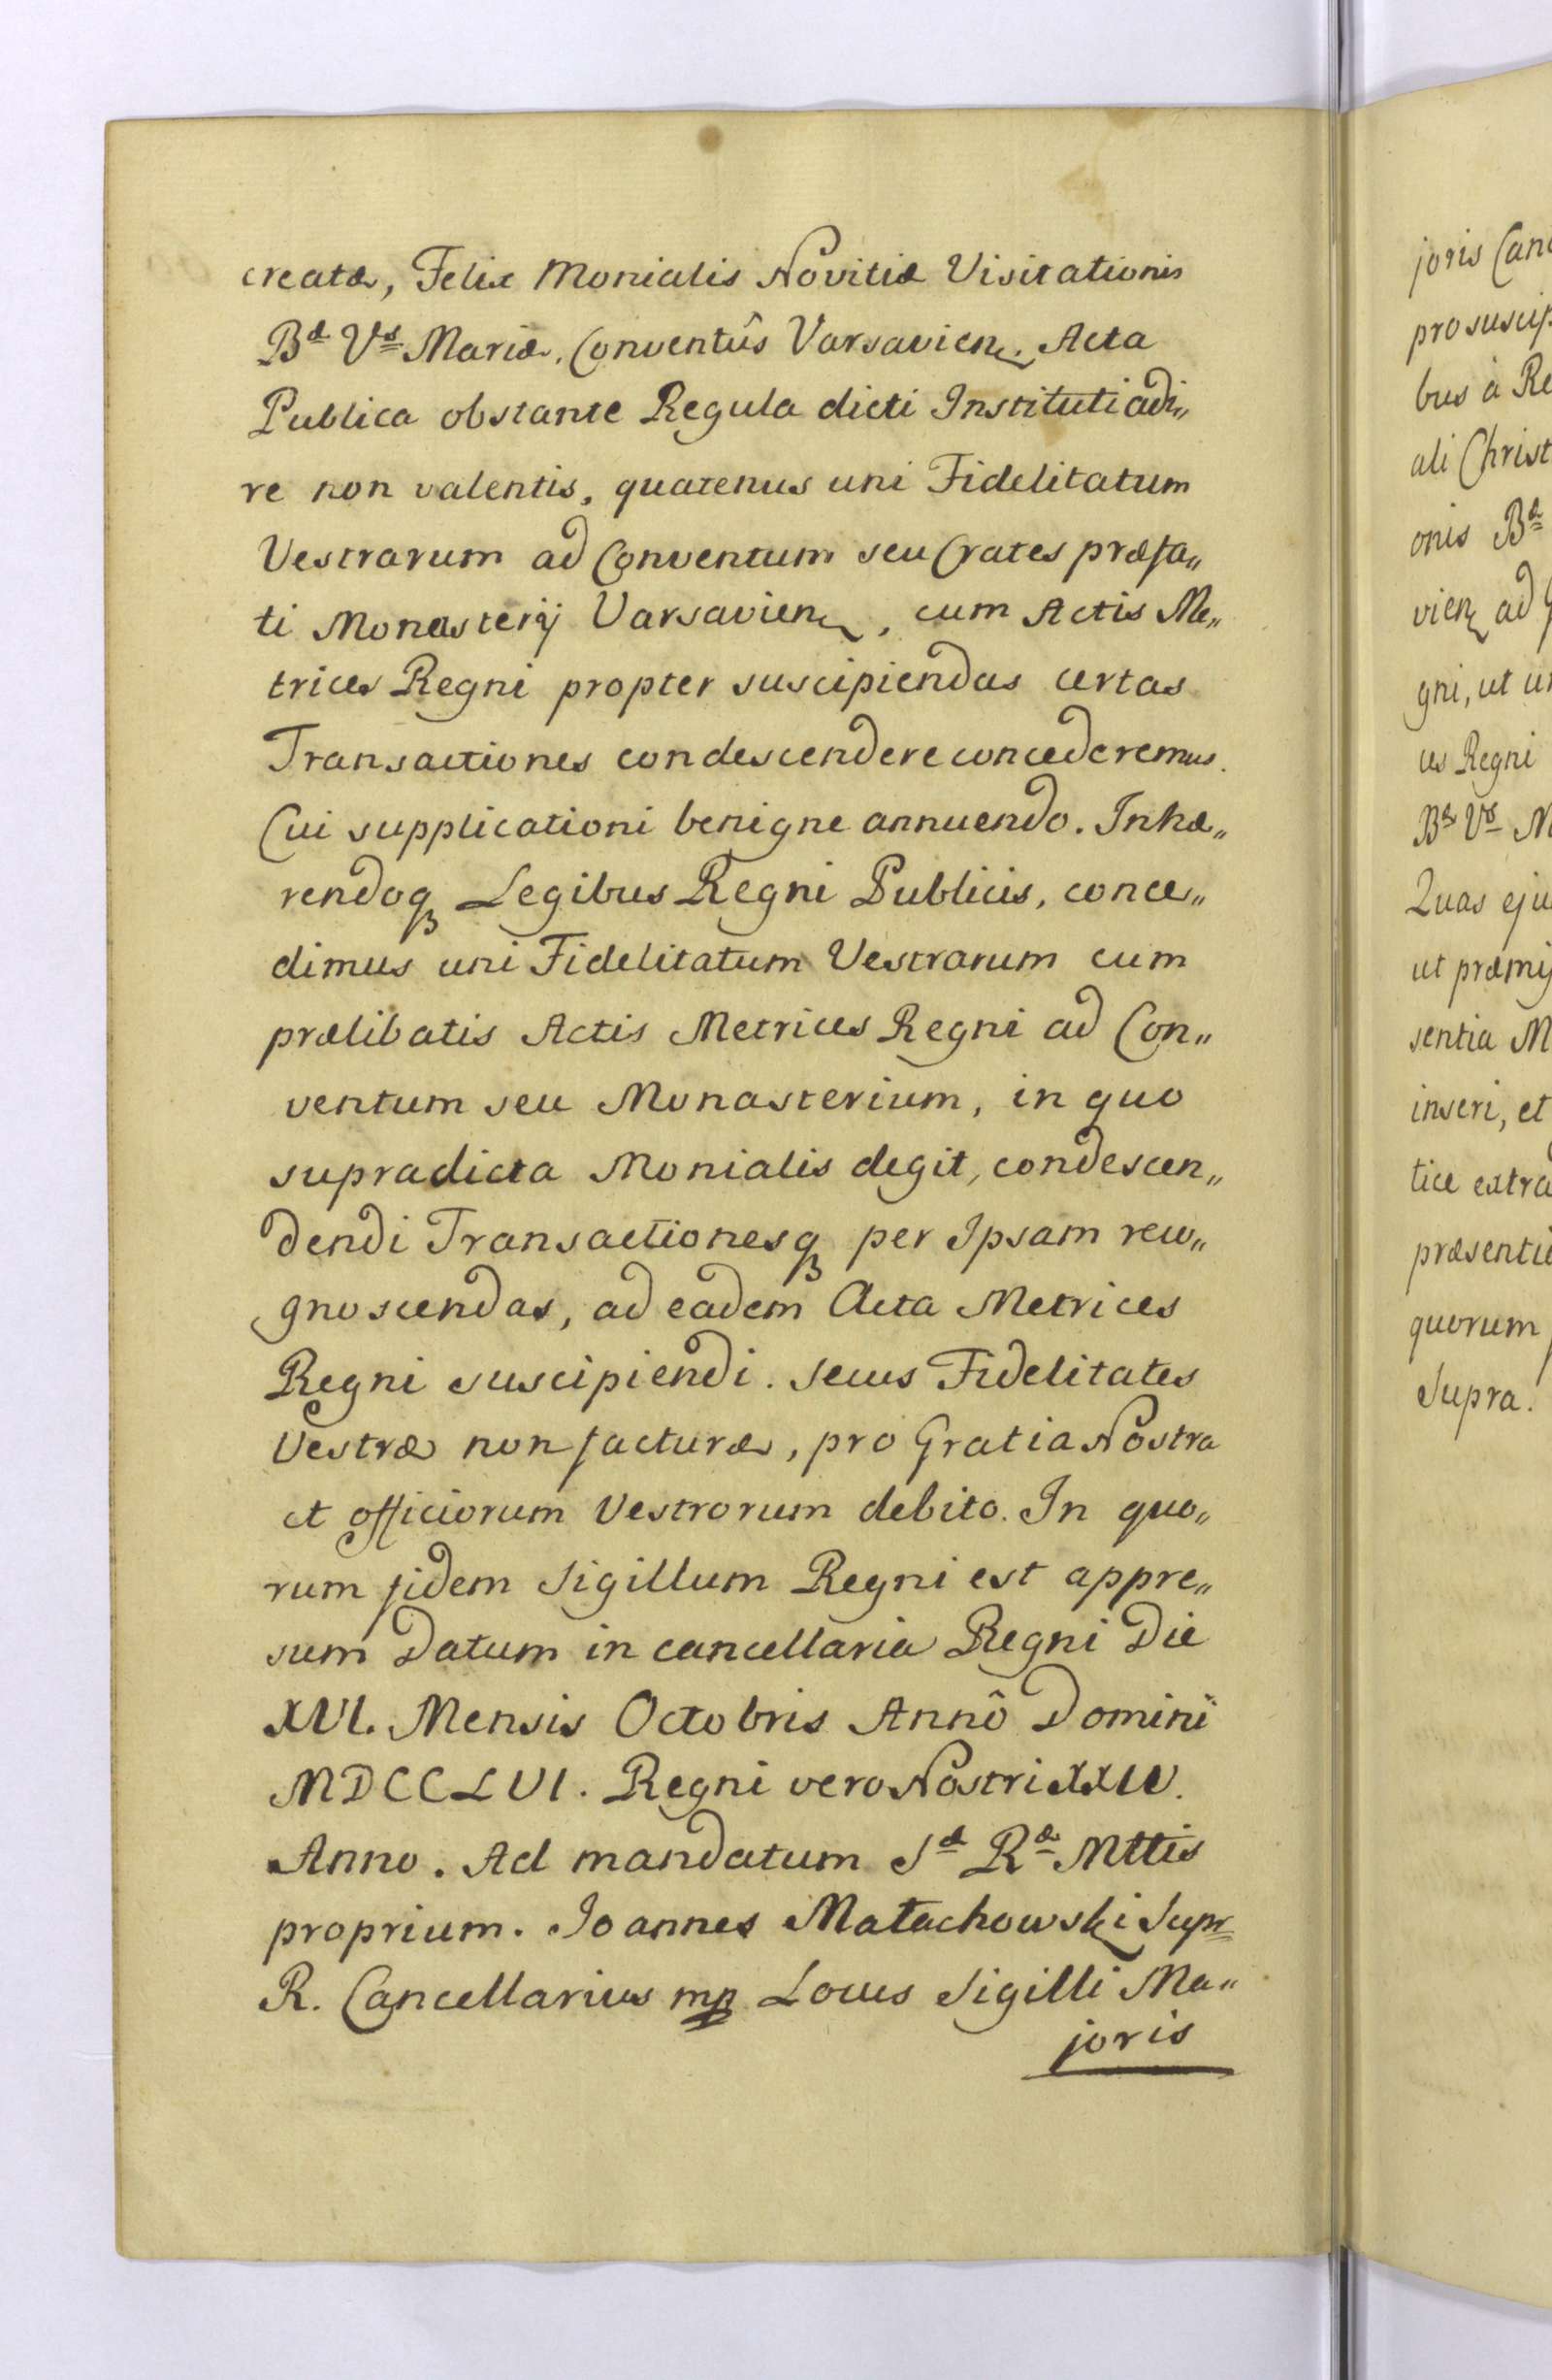 creatæ, Felix Monialis Novitiæ Visitationis
Bæ Vs Mariæ, Conventûs Varsavien. Acta
Publica obstante Regula dicti Instituti adi„
re non valentis, quatenus uni Fidelitatum
Vestrarum ad Conventum seu Crates præfa„
ti Monasterij Varsavien, cum Actis Me„
trices Regni propter suscipiendas certas
Transactiones condescendere concederemus.
Cui supplicationi benigne annuendo. Inhæ„
rendoq Legibus Regni Publicis, conce„
dimus uni Fidelitatum Vestrarum cum
prælibatis Actis Metrices Regni ad Con„
ventum seu Monasterium, in quo
supradicta Monialis degit, condescen„
dendi Transactionesq per Ipsam reco„
gnoscendas, ad eadem Acta Metrices
Regni suscipiendi. secus Fidelitates
Vestræ non facturæ, pro Gratia Nostra
et officiorum Vestrorum debito. In quo„
rum fidem Sigillum Regni est appre„
sum Datum in cancellaria Regni Die
XVI. Mensis Octobris Annô Domini
MDCCLVI. Regni vero Nostri XXIV.
Anno. Ad mandatum Sæ Ræ Mttis
proprium. Joannes Małachowski Supr
R. Cancellarius mp Locus Sigilli Ma„
joris
joris Canc
pro suscip
bus à Re
ali Christ
onis Bæ
vien ad
gni, ut un
ces Regni
Bæ Vs M
Quas eju
ut præmi
sentia M
inseri, et
tice extra
præsenti
quorum
Supra.